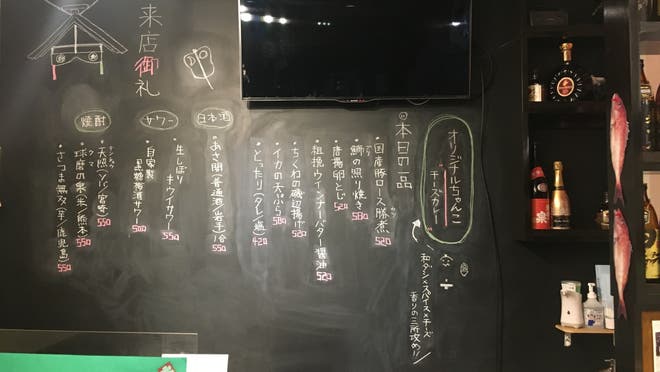 オリジナルちゃんこ
チーズカレー
和ダシ×スパイス×チーズ
香りの三所攻め!!
本日の一品
・国産豚ロース勝煮 520
・鰤の照り焼き 580
・唐揚卵とじ 520
・粗挽ウインナーバター醤油 520
・ちくわの磯辺揚げ 520
・イカの天ぷら 580
・とったり(タレ/塩) 420
日本酒
・あさ開(普通酒/岩手)1合 550
サワー
・生しぼりキウイサワー 550
・自家製黒糖梅酒サワー 500
焼酎
・天照(ソバ/宮崎) 550
・球磨の泉(米/熊本) 550
クマ
・さつま無双(芋/鹿児島) 550
来店御礼